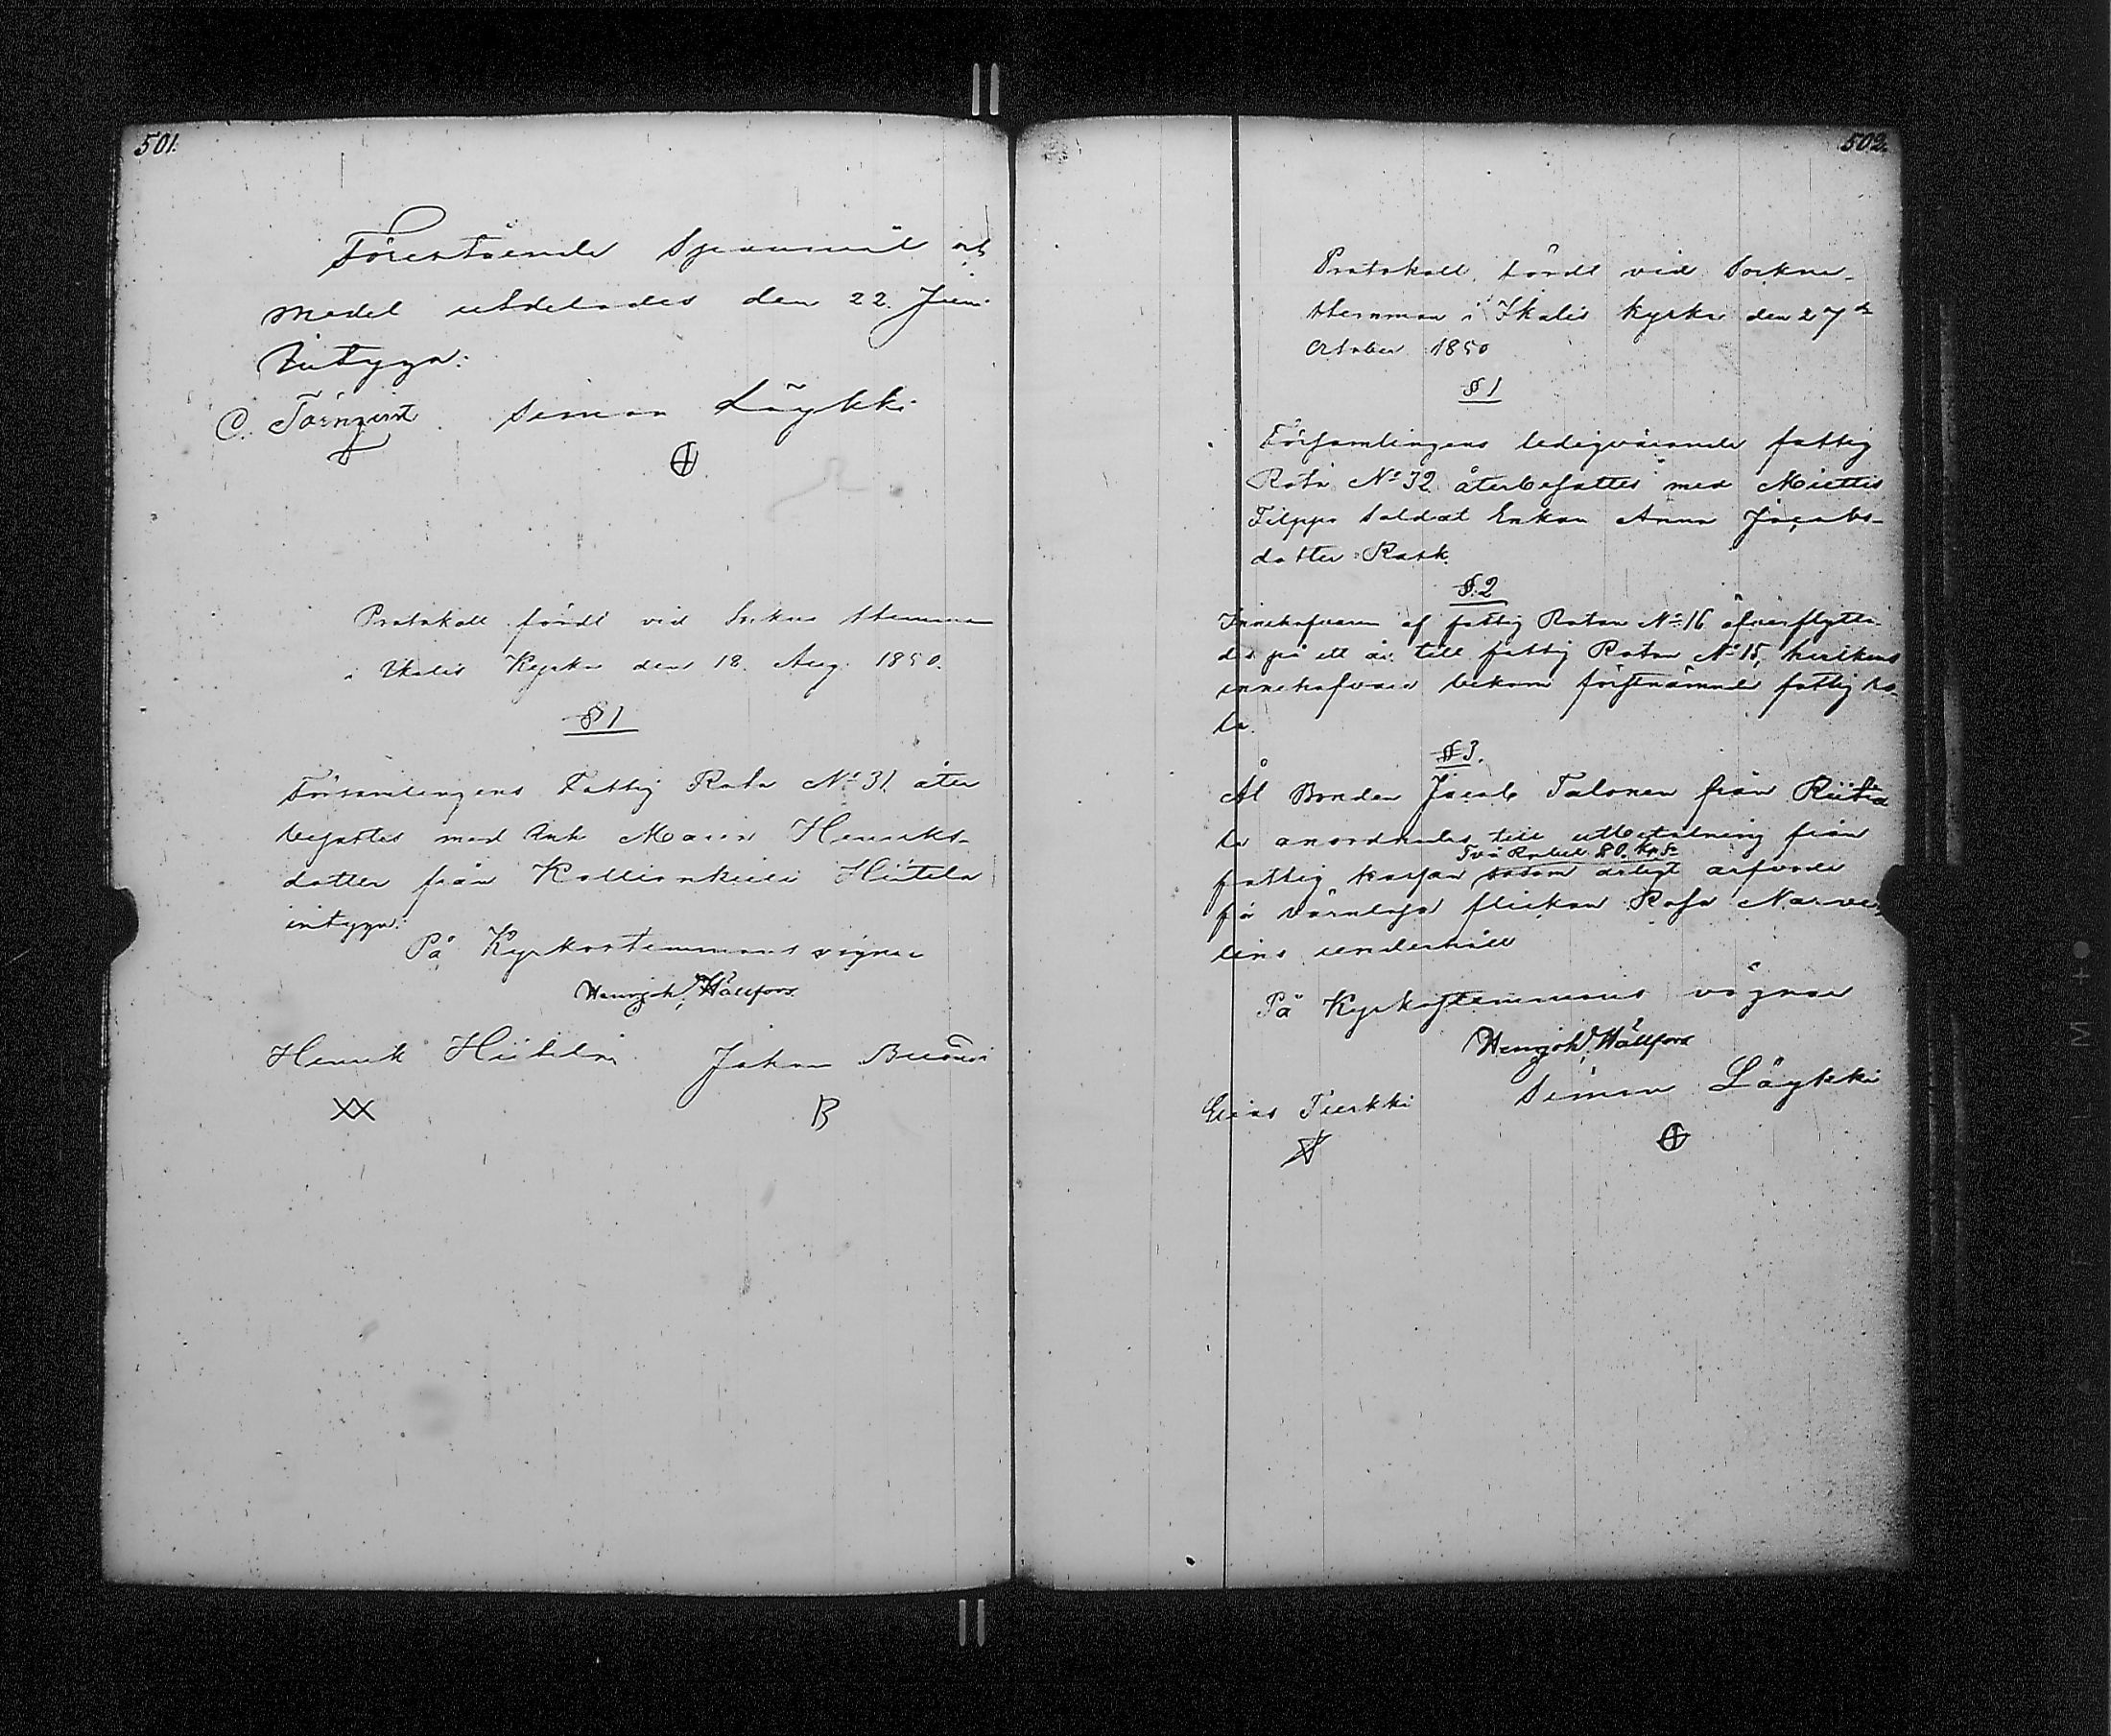 501.
Förestående Spanmål och
medel utdelades den 22. Juni
Intygar:
C. Törnqvist Simon Läykki
Protokoll fördt vid Sockne Stemman
i Ikalis Kyrka den 18. Aug. 1850.
§ 1
Församlingens Fattig Rota No 31 åter
besattes med Enk. Maria Henriks-
dotter från Kallionkieli Hiitela
intygar:
På Kyrkostemmans vägnar
Henrjoh: Hällfors
Henrik Hiitela Johan
XX B
502.
Protokoll, fördt vid Sockne-
stemman i Ikalis kyrka den 27de
October 1850
§ 1
Församlingens ledigvarande fattig
Rota No 32 återbesattes med Miettis
Filppo Soldat Enkan Anna Jacobs-
dotter Rask.
§. 2
Innehafvaren af fattig Rotan No 16 öfverflytta-
des på ett år till fattig Rotan No 15, hvilkens
innehafvare bekom förstnämnde fattig ro-
ta.
§ 3.
Åt Bonden Jacob Talonen från
la anordnades till utbetalning från
Två Rubel 80. Kop. Sr
fattig kassan såsom årligt arfvode
för värnlösa flickan Rosa
lins underhåll
På Kyrkostemmans vägnar
Henrjoh: Hällfors
Elias Simon Läykki